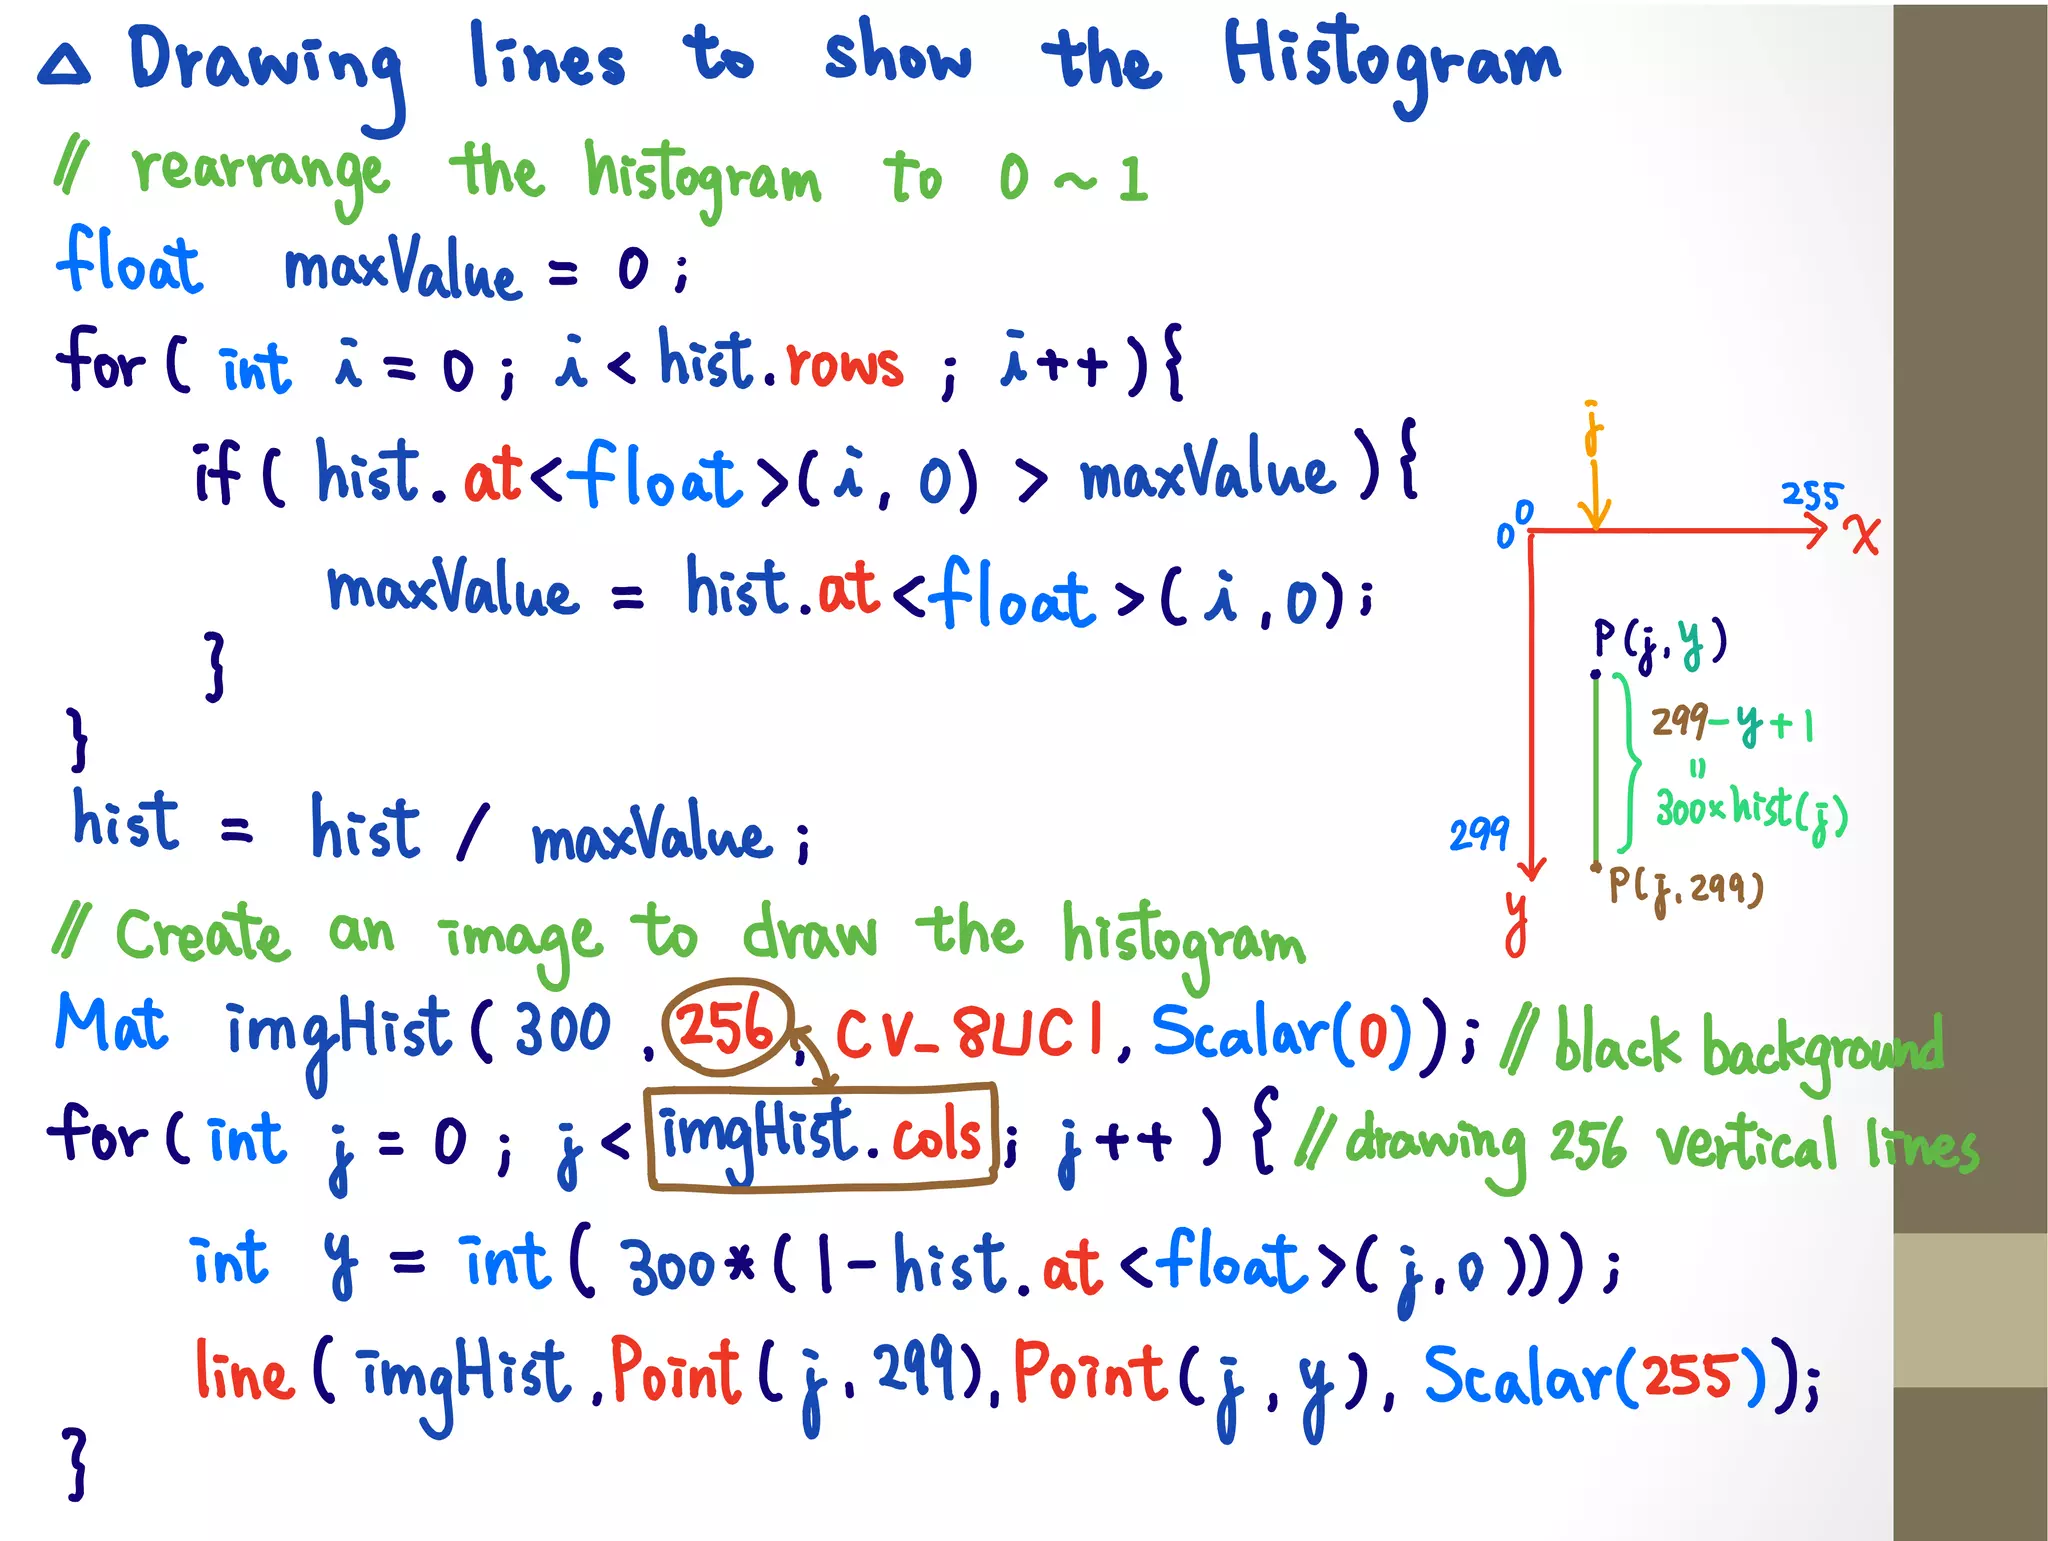 △ Drawing lines to show the Histogram
// rearrange the histogram to 0 ~ 1
float maxValue = 0 ;
for ( int i = 0 ; i < hist.rows ; i++ ){
if ( hist.at<float>(i, 0) > maxValue ){
maxValue = hist.at<float>(i,0);
}
}
hist = hist / maxValue ;
// Create an image to draw the histogram
Mat imgHist ( 300 , 256, CV_8UC1, Scalar(0)); // black background
for ( int j = 0 ; j < imgHist.cols ; j++ ) { // drawing 256 vertical lines
int y = int ( 300*( 1-hist.at<float>(j,0)));
line ( imgHist, Point(j, 299), Point(j, y), Scalar(255));
}
j
0 0 255 x
P(j, y)
299-y+1
=
300×hist(j)
299
P(j, 299)
y